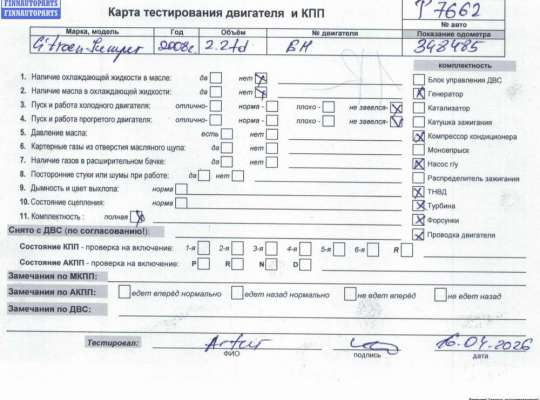 FINNAUTOPARTS
FINNAUTOPARTS
FINNAUTOPARTS
Карта тестирования двигателя и КПП
7662
№ авто
Марка, модель Год Объём № двигателя Показание одометра
Citroen Jumper 2008г 2.2td 348485
комплектность
1. Наличие охлаждающей жидкости в масле: да нет
Блок управления ДВС
2. Наличие масла в охлаждающей жидкости: да нет
Генератор
3. Пуск и работа холодного двигателя: отлично- норма - плохо - не завелся-
Катализатор
4. Пуск и работа прогретого двигателя: отлично- норма - плохо - не завелся-
Катушка зажигания
5. Давление масла: есть нет
Компрессор кондиционера
6. Картерные газы из отверстия масляного щупа: да нет
Моновпрыск
7. Наличие газов в расширительном бачке: да нет
Насос г/у
8. Посторонние стуки или шумы при работе: да нет
Распределитель зажигания
9. Дымность и цвет выхлопа: норма
ТНВД
10. Состояние сцепления: норма
Турбина
11. Комплектность : полная
Форсунки
Снято с ДВС (по согласованию!):
Проводка двигателя
Состояние КПП - проверка на включение: 1-я 2-я 3-я 4-я 5-я 6-я R
Состояние АКПП - проверка на включение: P R N D
Замечания по МКПП:
Замечания по АКПП: едет вперёд нормально едет назад нормально не едет вперёд не едет назад
Замечания по ДВС:
Тестировал: Artur 16.04.2026
ФИО подпись дата